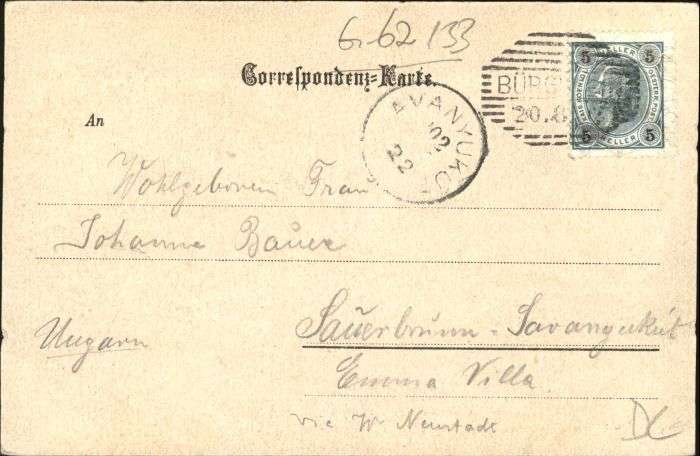 6.62 133
Correspondenz-Karte.
5 HELLER 5
5 HELLER 5
BÜRG
20.8
AVANYUKÚ
02
22
An
Wohlgeboren Frau
Johanna Bauer
Sauerbrunn - Savanyukút
Ungarn
Emma Villa
via W. Neustadt
DC